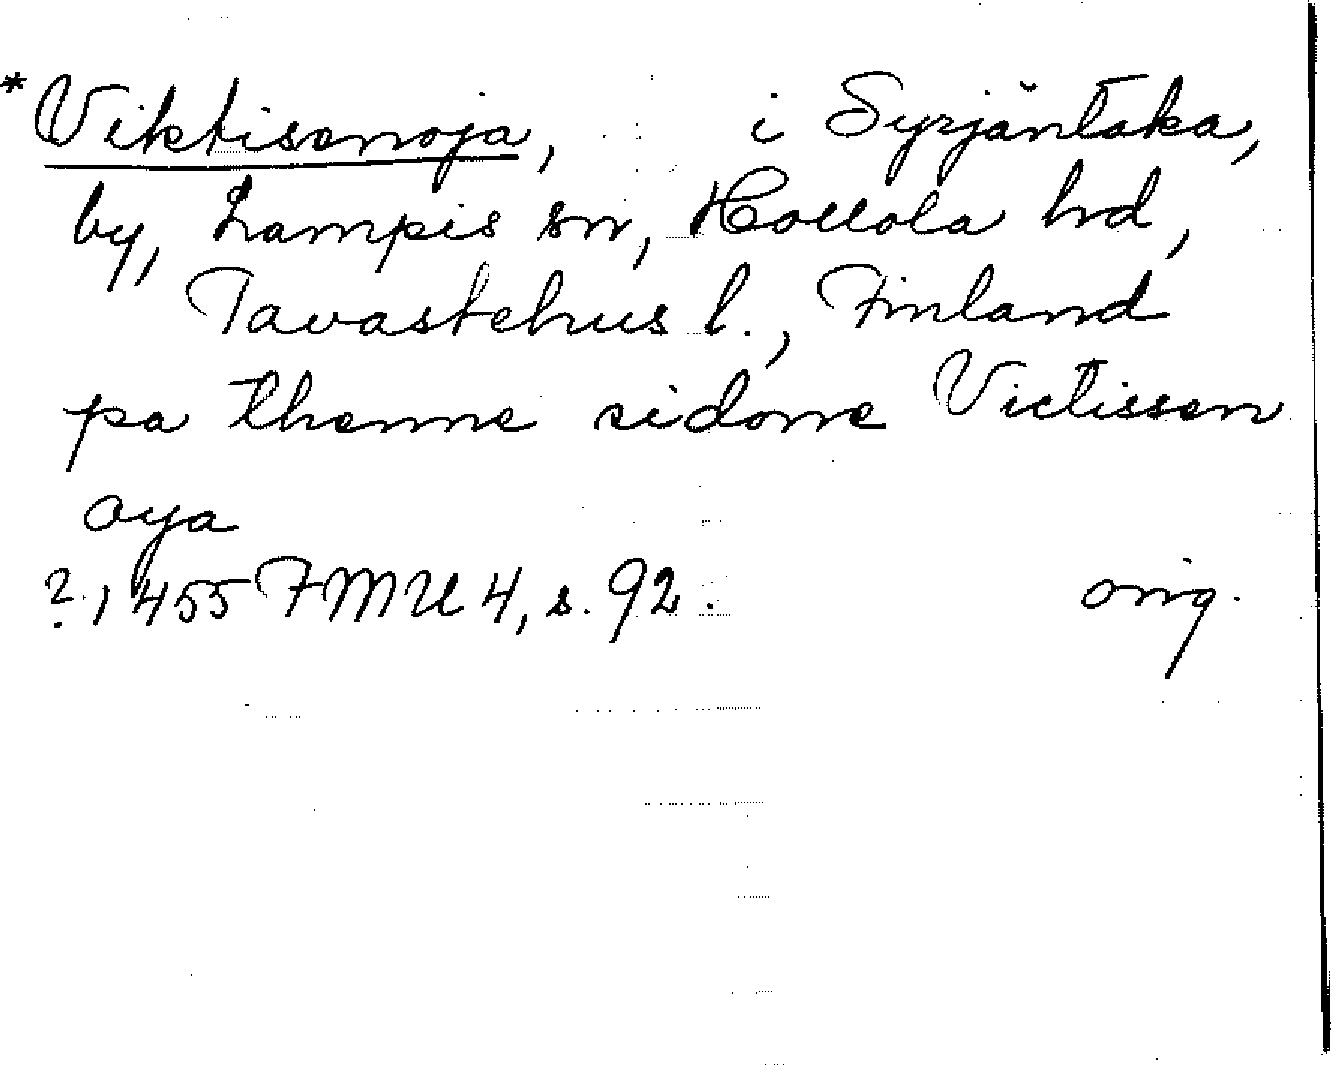 *Viktisenoja, i Syrjäntaka,
by, Lampis sn, Hollola hd,
Tavastehus l., Finland
pa thenne sidone Victissen
oya
?, 1455 FMU 4, s. 92. orig.